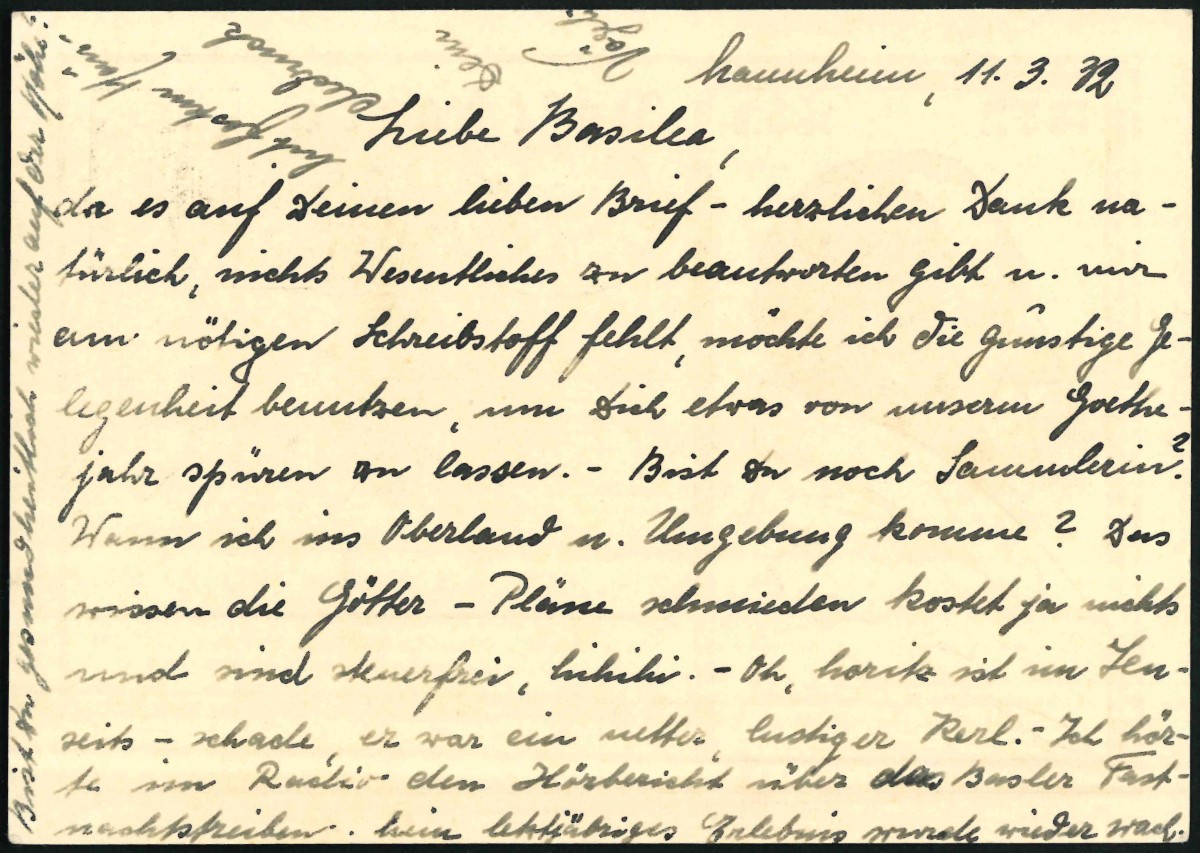 Mannheim, 11.3.32
Liebe Basilea,
da es auf Deinen lieben Brief - herzlichen Dank na-
türlich, nichts Wesentliches zu beantworten gibt u. mir
am nötigen Schreibstoff fehlt, möchte ich die günstige Ge-
legenheit benutzen, um Dich etwas von unserm Goethe-
jahr spüren zu lassen. - Bist Du noch Sammlerin?
Wann ich ins Oberland u. Umgebung komme? Das
wissen die Götter - Pläne schmieden kostet ja nichts
und sind steuerfrei, hihihi. - Oh, Moritz ist im Jen-
seits - schade, er war ein netter, lustiger Kerl. - Ich hör-
te im Radio den Hörbericht über das Basler Fast-
nachtstreiben. Mein letztjähriges Erlebnis wurde wieder wach.
Bist Du gesundheitlich wieder auf der Höhe?
Mit
Dein